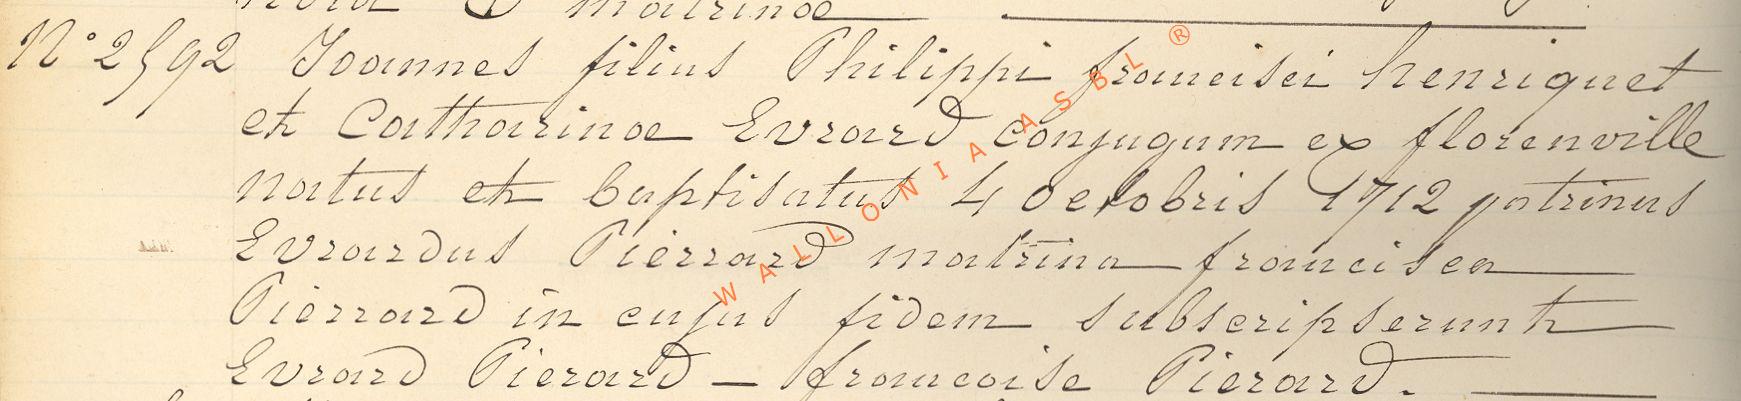 matrinae
N° 2592 Joannes filius Philippi francisci henriquet
et Catharinae Evrard conjugum ex florenville
natus et baptisatus 4 octobris 1712 patrinus
Evrardus Pierrard matrina francisca
Pierrard in cujus fidem subscripserunt
Evrard Pierard — francoise Pierard.
WALLONIA ASBL ®